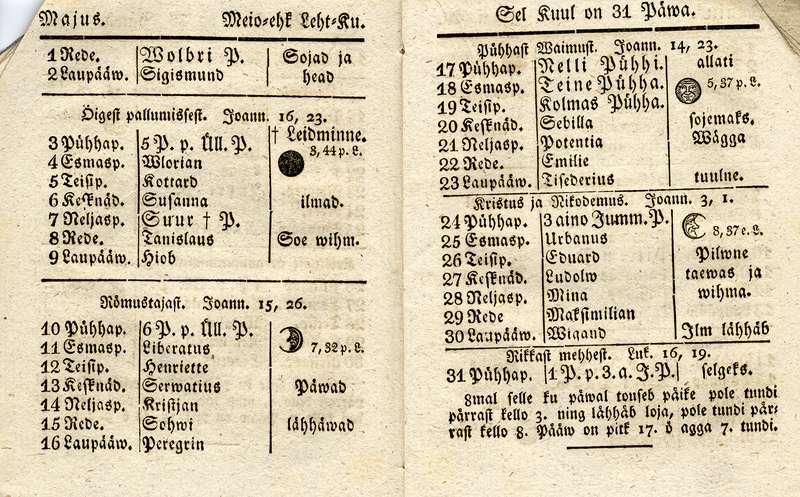 Majus. Meio-ehk Leht-Ku.
1 Rede. Wolbri P. Sojad ja
2 Laupääw. Sigismund head
Öigest pallumissest. Joann. 16, 23.
† Leidminne.
3 Pühhap. 5 P. p. Üll. P. 3, 44 p. L.
4 Esmasp. Wlorian
5 Teisip. Kottard
6 Kesknäd. Susanna ilmad.
7 Neljasp. Suur † P.
8 Rede. Tanislaus Soe wihm.
9 Laupääw. Hiob
Römustajast. Joann. 15, 26.
10 Pühhap. 6 P. p. Üll. P.
11 Esmasp. Liberatus 7, 32 p. L.
12 Teisip. Henriette
13 Kesknäd. Serwatius Päwad
14 Neljasp. Kristjan
15 Rede. Sohwi lähhäwad
16 Laupääw. Peregrin
Sel Kuul on 31 Päwa.
Pühhast Waimust. Joann. 14, 23.
17 Pühhap. Nelli Pühhi. allati
18 Esmasp. Teine Pühha. 5, 37 p. L.
19 Teisip. Kolmas Pühha.
20 Kesknäd. Sebilla sojemaks.
21 Neljasp. Potentia Wägga
22 Rede. Emilie
23 Laupääw. Tisederius tuulne.
Kristus ja Nikodemus. Joann. 3, 1.
24 Pühhap. 3 aino Jumm. P.
25 Esmasp. Urbanus 8, 37 e. L.
26 Teisip. Eduard Pilwne
27 Kesknäd. Ludolw taewas ja
28 Neljasp. Mina wihma.
29 Rede Maksimilian
30 Laupääw. Wigand Ilm lähhäb
Rikkast mehhest. Luk. 16, 19.
31 Pühhap. 1 P. p. 3. a. J. P. selgeks.
8mal selle ku päwal touseb päike pole tundi
pärrast kello 3. ning lähhäb loja, pole tundi pär-
rast kello 8. Pääw on pitk 17. ö agga 7. tundi.